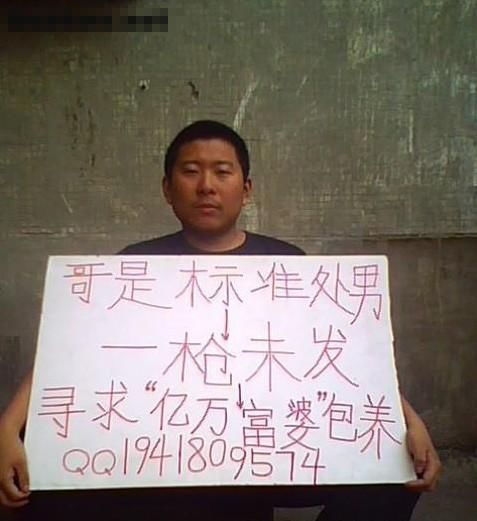 哥是标准处男
一枪未发
寻求“亿万富婆”包养
QQ1941809574